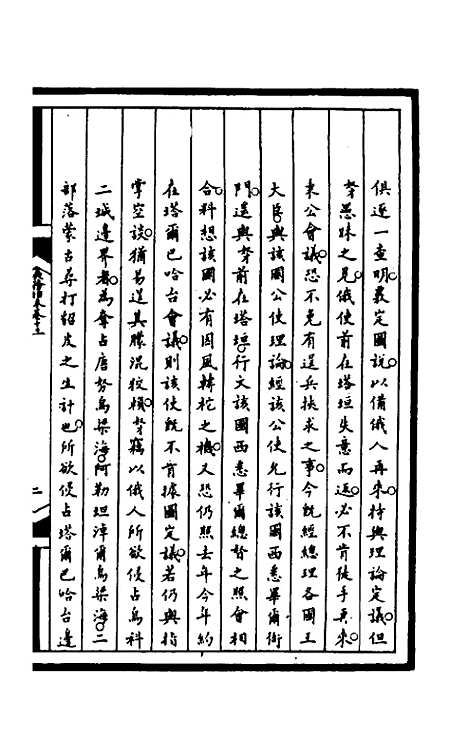 俱逐一查明義定圖說以備俄人再來持與理論定議但
孥愚昧之見俄使前在塔垣失意而返必不肯徒手再來
來公會議恐不免有逞兵挾求之事今既經總理各國王
大臣與該國公使理論經該公使允行該國西悉畢爾衙
門遥與孥前在塔垣行文該國西悉畢爾總督之照會相
合料想該國必有因風轉柁之機又恐仍照去年今年約
在塔爾巴哈台會議則該使既不肯據圖定議若仍與指
掌空談猶易逞其朦混狡頼孥竊以俄人所欲侵占烏科
二城邊界者為奪占唐努烏梁海阿勒坦淖爾烏梁海二
部落蒙古尋打貂皮之生計也所欲侵占塔爾巴哈台邊
二